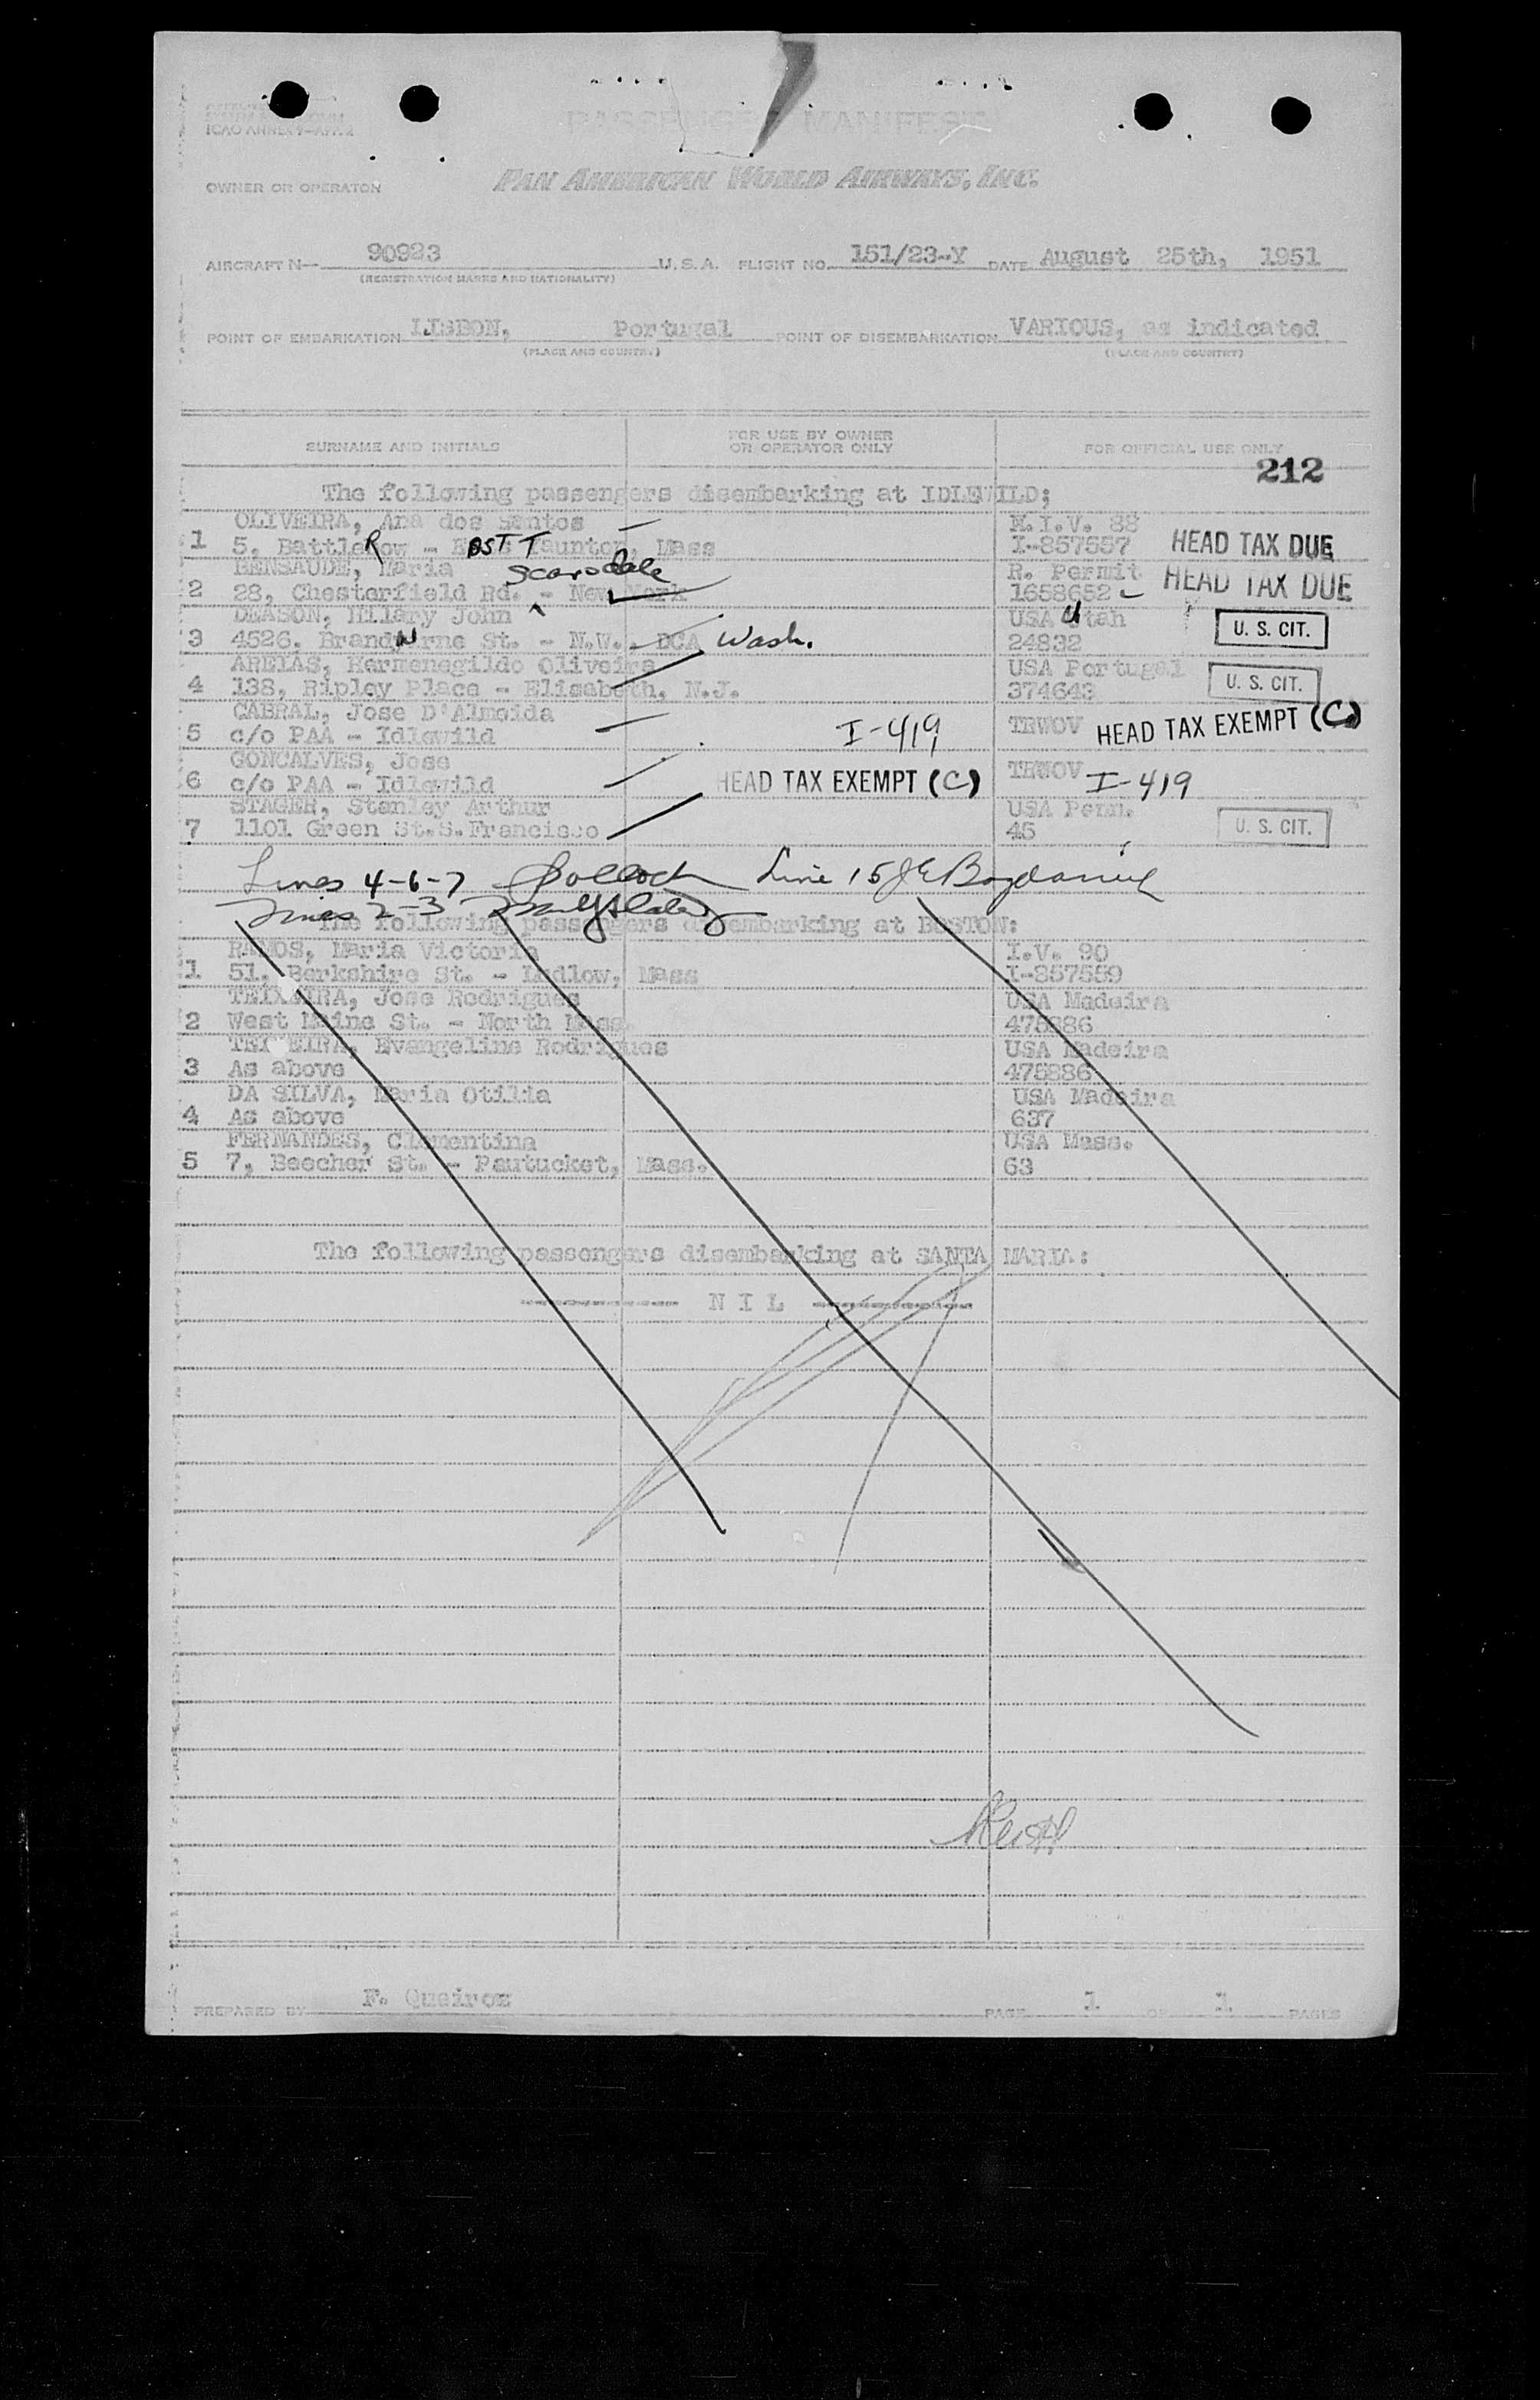 ICAO ANNEX 9-APP. 2
PASSENGER MANIFEST
OWNER OR OPERATOR PAN AMERICAN WORLD AIRWAYS, INC.
AIRCRAFT N- 90923 U.S.A. FLIGHT NO. 151/23-Y DATE August 25th, 1951
(REGISTRATION MARKS AND NATIONALITY)
POINT OF EMBARKATION LISBON, Portugal POINT OF DISEMBARKATION VARIOUS, as indicated
(PLACE AND COUNTRY) (PLACE AND COUNTRY)
SURNAME AND INITIALS FOR USE BY OWNER OR OPERATOR ONLY FOR OFFICIAL USE ONLY
212
The following passengers disembarking at IDLEWILD;
OLIVEIRA, Ana dos Santos N.I.V. 88
1 5, Battle Row - East Taunton, Mass I-857557 HEAD TAX DUE
BENSAUDE, Maria Scarsdale R. Permit
2 28, Chesterfield Rd. - New York 1658652 HEAD TAX DUE
DEASON, Hilary John USA Utah
3 4526. Brandywne St. - N.W. - DCA Wash. 24832 U. S. CIT.
AREIAS, Hermenegildo Oliveira USA Portugal
4 138, Ripley Place - Elisabeth, N.J. 374643 U. S. CIT.
CABRAL, Jose D'Almeida
5 c/o PAA - Idlewild I-419 TRWOV HEAD TAX EXEMPT (C)
GONCALVES, Jose
6 c/o PAA - Idlewild HEAD TAX EXEMPT (C) TRWOV I-419
STAGER, Stanley Arthur USA Penn.
7 1101 Green St.S.Francisco 45 U. S. CIT.
Lines 4-6-7 Line 15
Lines 2-3
The following passengers disembarking at BOSTON:
RAMOS, Maria Victoria I.V. 90
1 51, Berkshire St. - Ludlow, Mass I-857559
TEIXEIRA, Jose Rodrigues USA Madeira
2 West Maine St. - North Mass. 475886
TEIXEIRA, Evangeline Rodrigues USA Madeira
3 As above 475886
DA SILVA, Maria Otilia USA Madeira
4 As above 637
FERNANDES, Clementina USA Mass.
5 7, Beecher St. - Pautucket, Mass. 63
The following passengers disembarking at SANTA MARIA:
----------- N I L -----------
PREPARED BY F. Queiroz PAGE 1 OF 1 PAGES